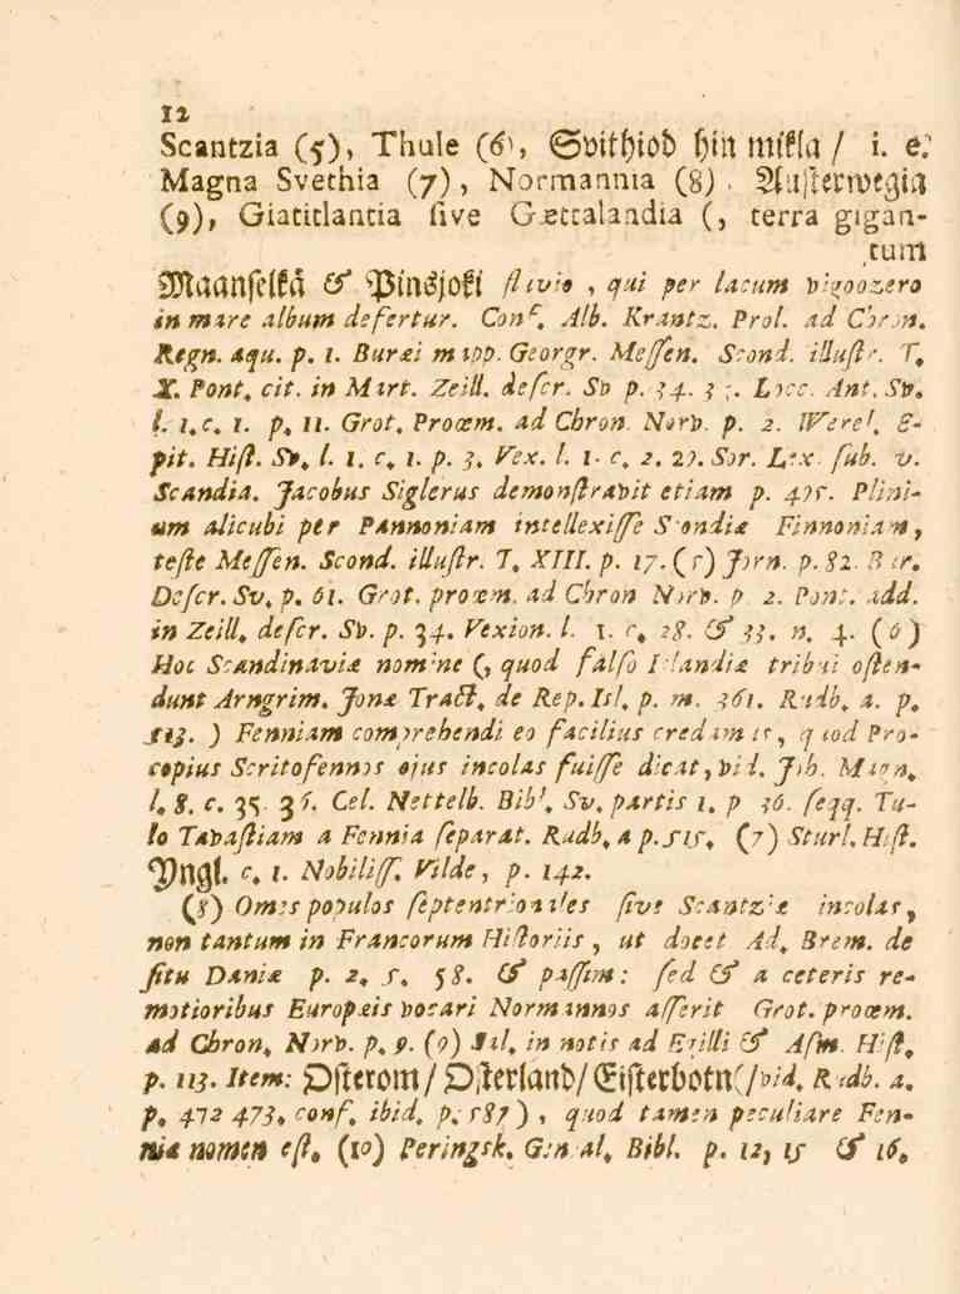 12
Scantzia (5), Thule (6), Svithiod hin mikla / i. e.
Magna Svethia (7), Normannia (8). Austerwegia
(9), Giatitlantia ſive Gættalandia (, terra gigan-
tum
Maanſelkå & Pinsjoki fluvio, qui per lacum vigoozero
in mare album defertur. Conf. Alb. Krantz. Prol. ad Chron.
Regn. aqu. p. 1. Buræi mapp. Georgr. Meſſen. Scond. illuſtr. T.
X. Pont. cit. in Mart. Zeill. deſcr. Sv p. 34. Locc. Ant. Sv.
l. 1. c. 1. p. 11. Grot. Proœm. ad Chron. Norv. p. 2. Werel. E-
pit. Hiſt. Sv. l. 1. c. 1. p. 3. Vex. l. 1. c. 2. 27. Sor. Lex. ſub. v.
Scandia. Jacobus Siglerus demonſtravit etiam p. Plini-
um alicubi per Pannoniam intellexiſſe Scondiæ Finnoniam,
teſte Meſſen. Scond. illuſtr. T. XIII. p. 17. (5) Jorn. p. 82. Bur.
Deſcr. Sv. p. 61. Grot. proœm. ad Chron Norv. p 2. Pont. add.
in Zeill. deſcr. Sv. p. 34. Vexion. l. 1. c. 28. & 33. n. 4. (6)
Hoc Scandinaviæ nomine (, quod falſo Islandiæ tribui oſten-
dunt Arngrim. Jonæ Tract. de Rep. Isl. p. m. 361. Rudb. a. p.
513. ) Fenniam comprehendi eo facilius credamus, quod Pro-
copius Scritofennos ejus incolas fuiſſe dicat, vid. Joh. Magn.
l. 8. c. 35 36. Cel. Nettelb. Bibl. Sv. partis 1. p 36. ſeqq. Tu-
lo Tavaſtiam a Fennia ſeparat. Rudb. a p. 515. (7) Sturl. Hiſt.
Yngl. c. 1. Nobiliſſ. Vilde, p. 142.
(8) Omnes populos ſeptentrionales ſive Scantziæ incolas,
non tantum in Francorum Hiſtoriis, ut docet Ad. Brem. de
ſitu Daniæ p. 2. 5. 58. & paſſim: ſed & a ceteris re-
motioribus Europæis vocari Normannos aſſerit Grot. proœm.
ad Chron. Norv. p. 9. (9) Sal. in notis ad Egilli & Aſm. Hiſt.
p. 113. Item: Oſterom / Oſterland / Eiſterbotn (/ vid. Rudb. a.
p. 472 473. conf. ibid. p. 587), quod tamen peculiare Fen-
niæ nomen eſt. (10) Peringsk. Gen al. Bibl. p. 12, 15 & 16.